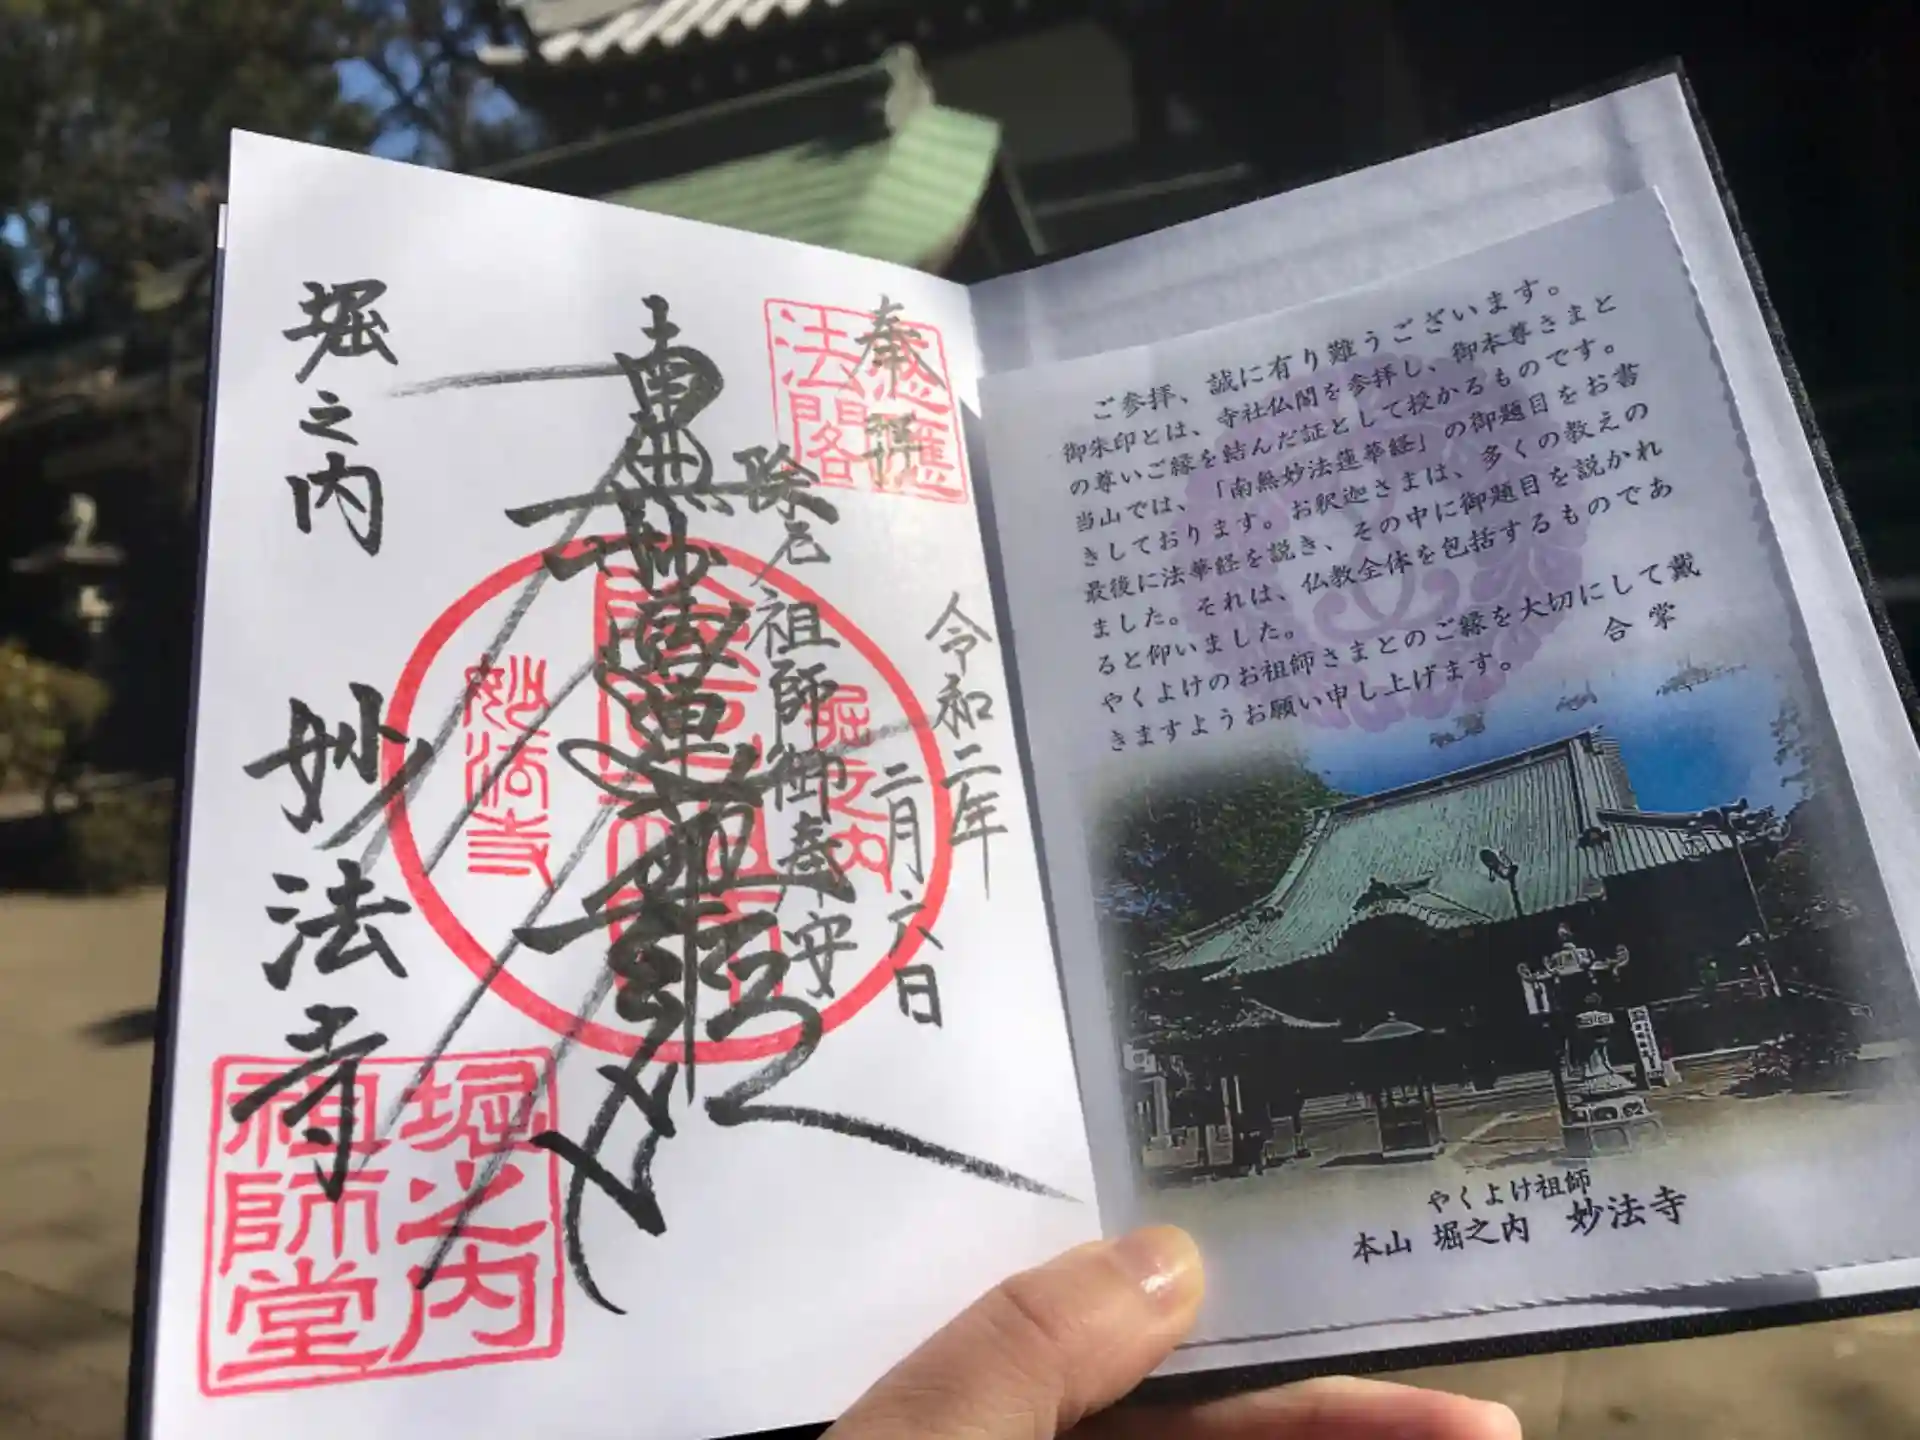 奉拝
令和二年
二月六日
除厄 祖師御奉安
南無妙法蓮華経
堀之内 妙法寺
法閣
堀之内
妙法寺
堀之内
祖師堂
ご参拝、誠に有り難うございます。
御朱印とは、寺社仏閣を参拝し、御本尊さまと
の尊いご縁を結んだ証として授かるものです。
当山では、「南無妙法蓮華経」の御題目をお書
きしております。お釈迦さまは、多くの教えの
最後に法華経を説き、その中に御題目を説かれ
ました。それは、仏教全体を包括するものであ
ると仰いました。
やくよけのお祖師さまとのご縁を大切にして戴
きますようお願い申し上げます。
合掌
やくよけ祖師
本山 堀之内 妙法寺